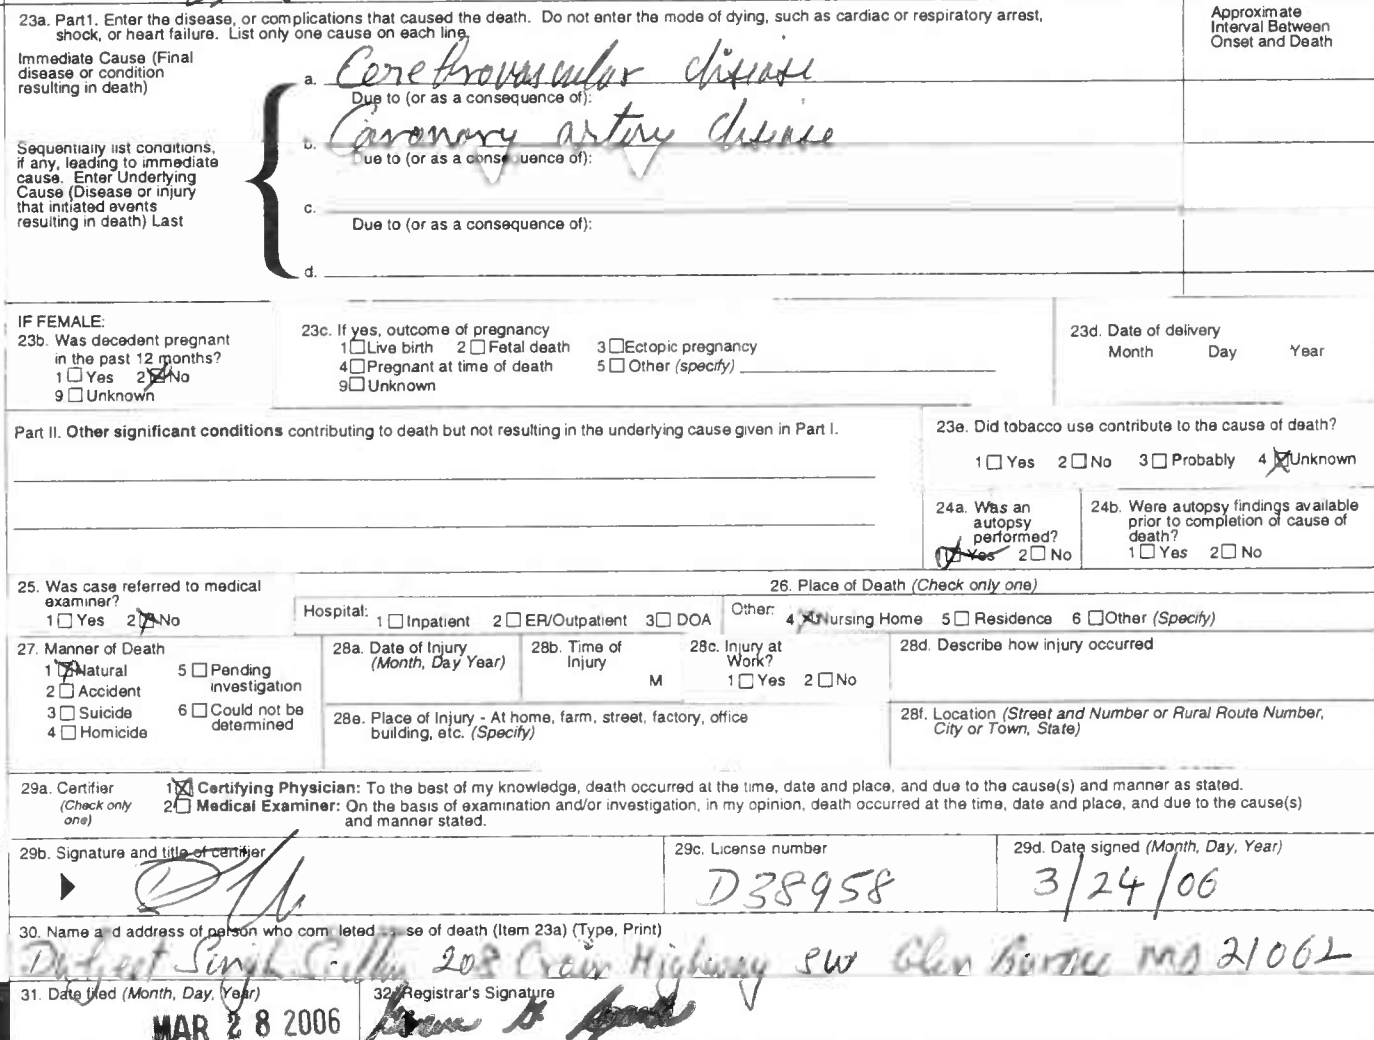 23a. Part1. Enter the disease, or complications that caused the death. Do not enter the mode of dying, such as cardiac or respiratory arrest,
shock, or heart failure. List only one cause on each line.
Approximate
Interval Between
Onset and Death
Immediate Cause (Final
disease or condition
resulting in death)
a. Cerebrovascular disease
Due to (or as a consequence of):
b. Coronary artery disease
Due to (or as a consequence of):
Sequentially list conditions,
if any, leading to immediate
cause. Enter Underlying
Cause (Disease or injury
that initiated events
resulting in death) Last
c.
Due to (or as a consequence of):
d.
IF FEMALE:
23b. Was decedent pregnant
in the past 12 months?
1 ☐ Yes 2 ☒ No
9 ☐ Unknown
23c. If yes, outcome of pregnancy
1 ☐ Live birth 2 ☐ Fetal death 3 ☐ Ectopic pregnancy
4 ☐ Pregnant at time of death 5 ☐ Other (specify)
9 ☐ Unknown
23d. Date of delivery
Month Day Year
Part II. Other significant conditions contributing to death but not resulting in the underlying cause given in Part I.
23e. Did tobacco use contribute to the cause of death?
1 ☐ Yes 2 ☐ No 3 ☐ Probably 4 ☒ Unknown
24a. Was an
autopsy
performed?
1 ☒ Yes 2 ☐ No
24b. Were autopsy findings available
prior to completion of cause of
death?
1 ☐ Yes 2 ☐ No
25. Was case referred to medical
examiner?
1 ☐ Yes 2 ☒ No
26. Place of Death (Check only one)
Hospital: 1 ☐ Inpatient 2 ☐ ER/Outpatient 3 ☐ DOA Other: 4 ☒ Nursing Home 5 ☐ Residence 6 ☐ Other (Specify)
27. Manner of Death
1 ☒ Natural 5 ☐ Pending
investigation
2 ☐ Accident
3 ☐ Suicide 6 ☐ Could not be
determined
4 ☐ Homicide
28a. Date of Injury
(Month, Day Year)
28b. Time of
Injury
M
28c. Injury at
Work?
1 ☐ Yes 2 ☐ No
28d. Describe how injury occurred
28e. Place of Injury - At home, farm, street, factory, office
building, etc. (Specify)
28f. Location (Street and Number or Rural Route Number,
City or Town, State)
29a. Certifier
(Check only
one)
1 ☒ Certifying Physician: To the best of my knowledge, death occurred at the time, date and place, and due to the cause(s) and manner as stated.
2 ☐ Medical Examiner: On the basis of examination and/or investigation, in my opinion, death occurred at the time, date and place, and due to the cause(s)
and manner stated.
29b. Signature and title of certifier
29c. License number
D38958
29d. Date signed (Month, Day, Year)
3/24/06
30. Name a d address of person who com leted se of death (Item 23a) (Type, Print)
Singh 208 Crain Highway SW Glen Burnie MD 21062
31. Date filed (Month, Day, Year)
MAR 28 2006
32. Registrar's Signature